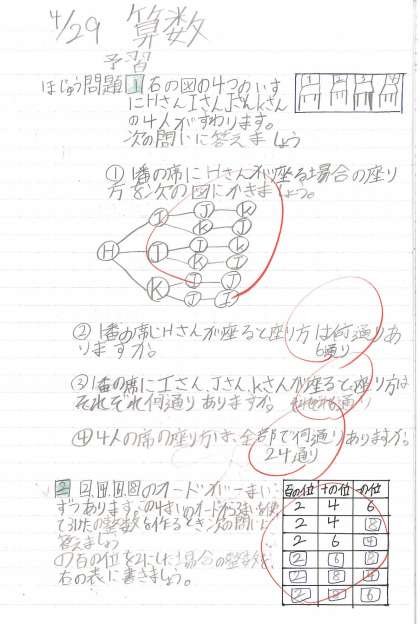 4/29 算数
予習
ほじゅう問題1 右の図の4つのいす
にHさんIさんJさんKさん
の4人がすわります。
次の問いに答えましょう
1 2 3 4
①1番の席にHさんが座る場合の座り
方を次の図にかきましょう。
H I J K
K J
J I K
K I
K I J
J I
②1番の席にHさんが座ると座り方は何通りあ
りますか。 6通り
③1番の席にIさん、Jさん、Kさんが座ると座り方は
それぞれ何通りありますか。
④4人の席の座り方は、全部で何通りありますか。
24通り
2 のカードが一まい
ずつあります。
答えましょう
の百の位を2にした場合の整数を
右の表に書きましょう。
百の位 十の位 一の位
2 4 6
2 4 8
2 6 4
2 6 8
2 8 4
2 8 6